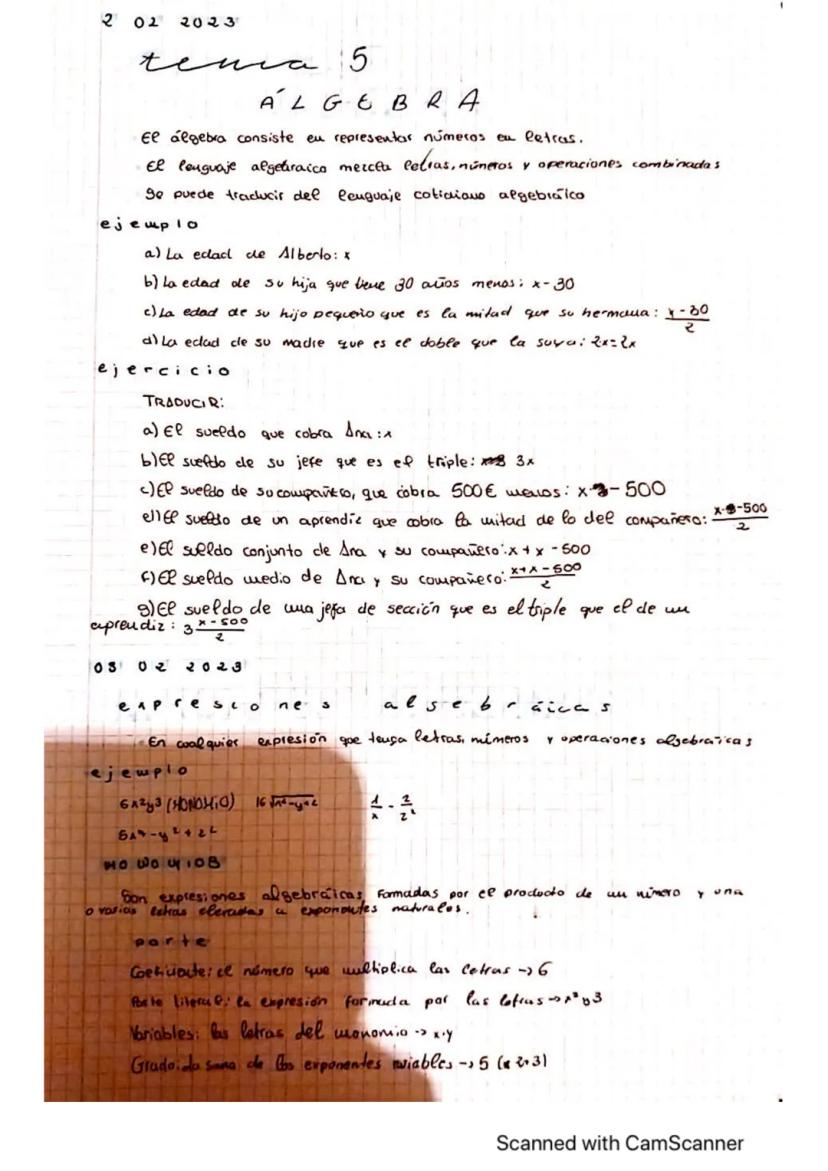 2 02 2023
tema 5
ÁLGEBRA
El álgebra consiste en representar números en letras.
El lenguaje algebraico mezcla letras, números y operaciones combinadas
Se puede traducir del lenguaje cotidiano algebraico
ejemplo
a) La edad de Alberto: x
b) La edad de su hija que tiene 30 años menos: x-30
c) La edad de su hijo pequeño que es la mitad que su hermana: x-30/2
d) La edad de su madre que es el doble que la suya: 2x=2x
ejercicio
TRADUCIR:
a) El sueldo que cobra Ana: x
b) El sueldo de su jefe que es el triple: 3x
c) El sueldo de su compañero, que cobra 500€ menos: x-500
d) El sueldo de un aprendiz que cobra la mitad de lo del compañero: x-500/2
e) El sueldo conjunto de Ana y su compañero: x+x-500
f) El sueldo medio de Ana y su compañero: x+x-500/2
g) El sueldo de una jefa de sección que es el triple que el de un
aprendiz: 3 x-500/2
03 02 2023
expresiones algebráicas
En cualquier expresión que tenga letras, números y operaciones algebraicas
ejemplo
6x²y³ (MONOMIO) 1/x - 2/z²
MONOMIOS
Son expresiones algebráicas formadas por el producto de un número y una
o varias letras elevadas a exponentes naturales.
parte
Coeficiente: el número que multiplica las letras -> 6
Parte literal: la expresión formada por las letras -> x²y3
Variables: las letras del monomio -> x·y
Grado: la suma de los exponentes variables -> 5 (2+3)
Scanned with CamScanner